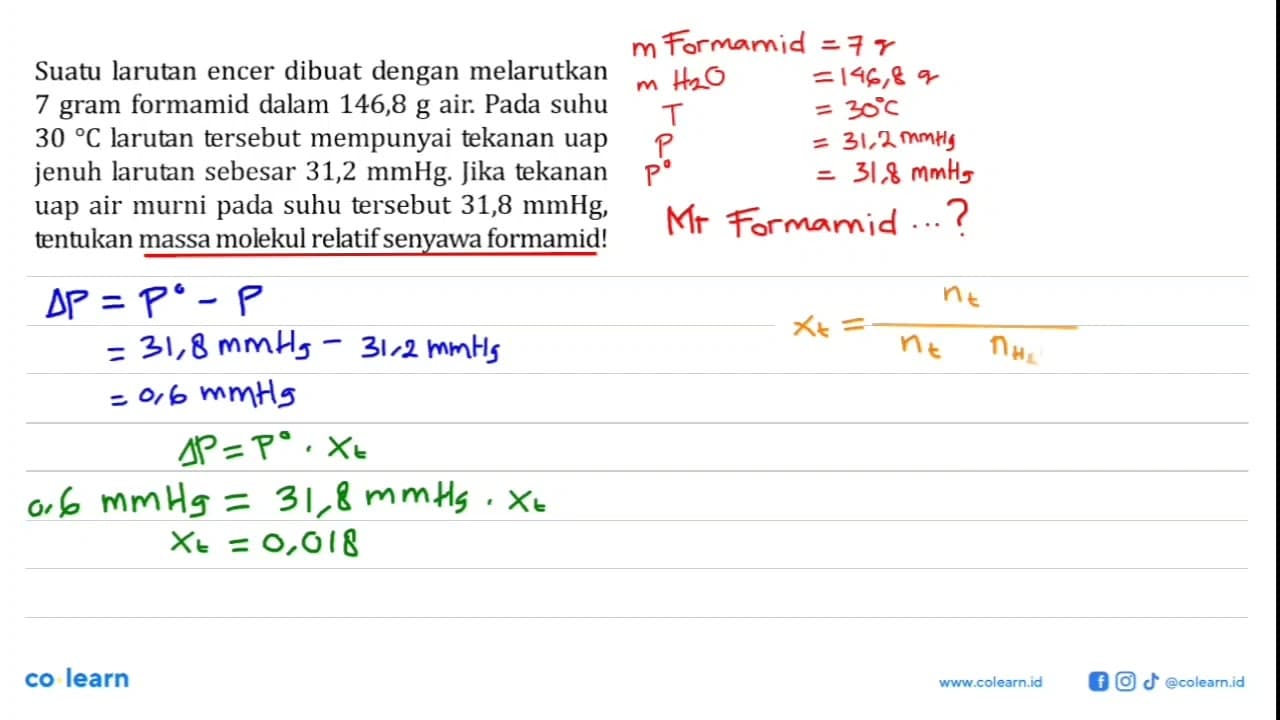 Suatu larutan encer dibuat dengan melarutkan
7 gram formamid dalam 146,8 g air. Pada suhu
30 °C larutan tersebut mempunyai tekanan uap
jenuh larutan sebesar 31,2 mmHg. Jika tekanan
uap air murni pada suhu tersebut 31,8 mmHg,
tentukan massa molekul relatif senyawa formamid!
m Formamid = 7 g
m H2O = 146,8 g
T = 30°C
P = 31,2 mmHg
P° = 31,8 mmHg
Mr Formamid ...?
ΔP = P° - P
= 31,8 mmHg - 31,2 mmHg
= 0,6 mmHg
ΔP = P° . Xt
0,6 mmHg = 31,8 mmHg . Xt
Xt = 0,018
Xt = nt
nt nH2
co learn
www.colearn.id
@colearn.id